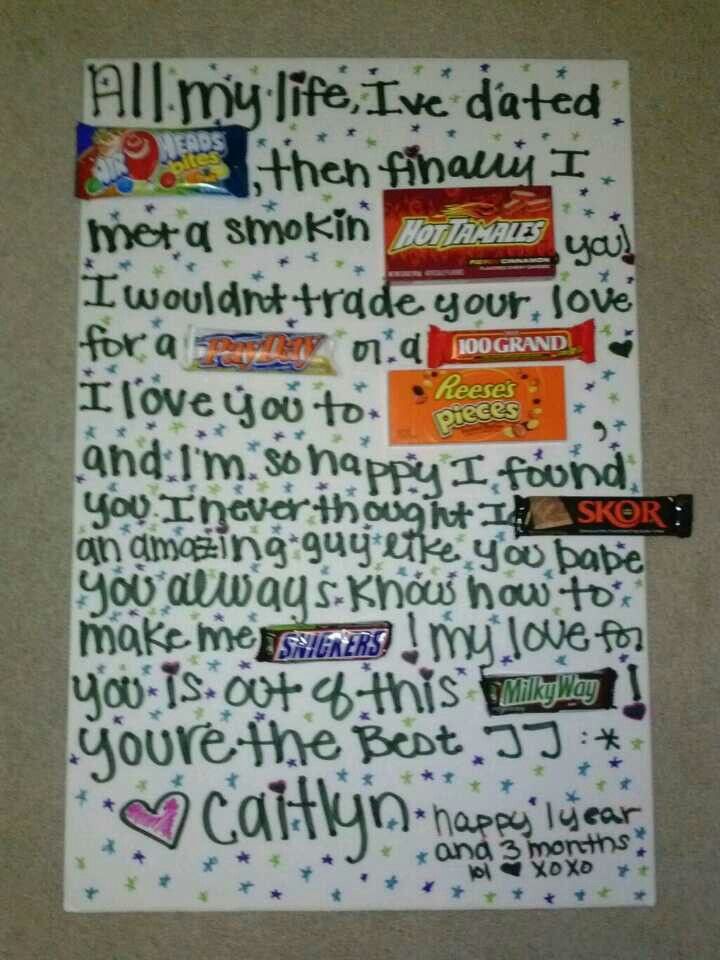 All my life, Ive dated
AIRHEADS bites, then finally I
met a smokin HOT TAMALES, you!
I wouldnt trade your love
for a PayDay or a 100 GRAND
I love you to Reese's Pieces,
and I'm so happy I found
you. I never thought Id SKOR
an amazing guy like you babe
you always know how to
make me SNICKERS! my love for
you is out of this Milky Way!
you're the Best JJ :*
caitlyn
happy 1 year
and 3 months
lol XOXO